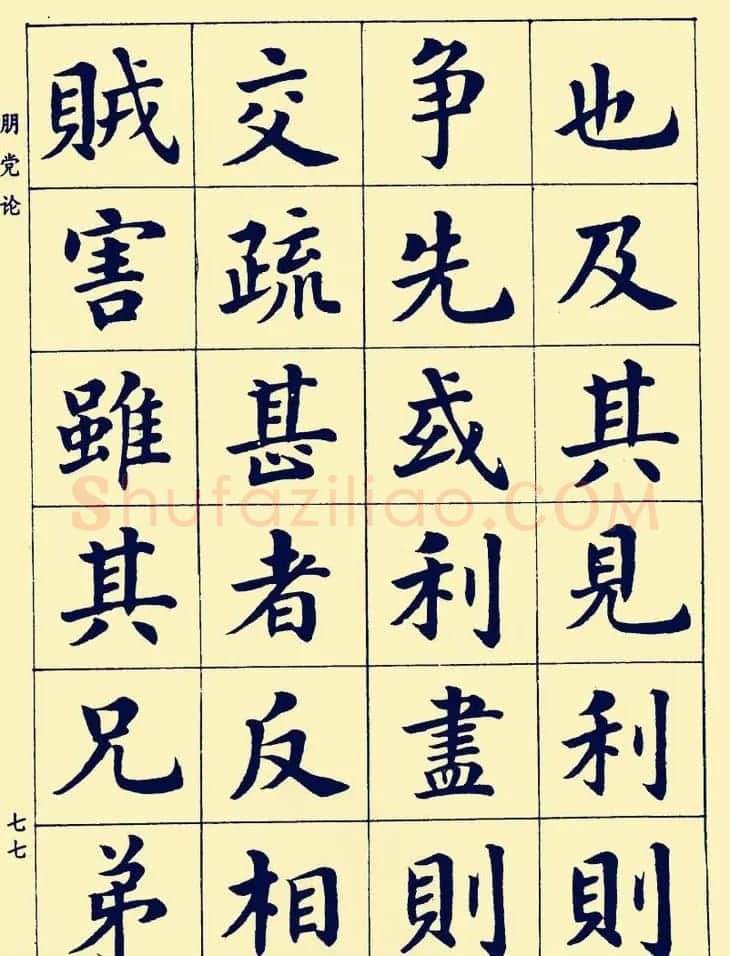 也及其見利則
争先或利盡則
交疏甚者反相
賊害雖其兄弟
朋党论
七七
Shufaziliao.COM